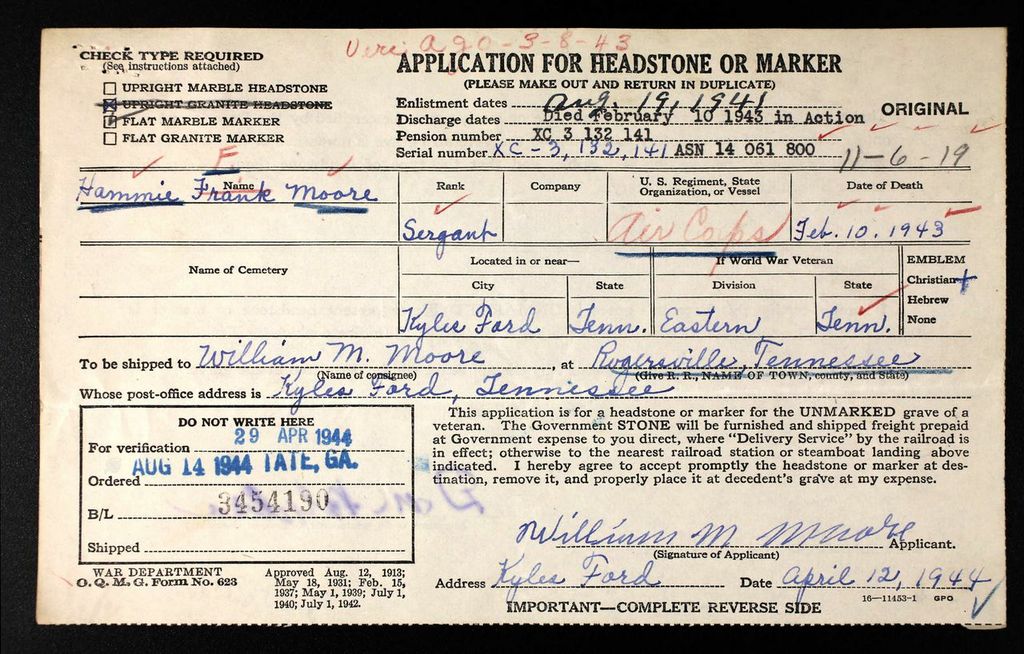 Veri. Ago-3-8-43
CHECK TYPE REQUIRED
(See instructions attached)
UPRIGHT MARBLE HEADSTONE
UPRIGHT GRANITE HEADSTONE
FLAT MARBLE MARKER
FLAT GRANITE MARKER
APPLICATION FOR HEADSTONE OR MARKER
(PLEASE MAKE OUT AND RETURN IN DUPLICATE)
Enlistment dates Aug. 19, 1941
Discharge dates Died February 10 1943 in Action
ORIGINAL
Pension number XC 3 132 141
Serial number XC-3, 132, 141 ASN 14 061 800
11-6-19
F.
Name
Hammie Frank Moore
Rank
Sergant
Company
U. S. Regiment, State
Organization, or Vessel
Air Corps
Date of Death
Feb. 10. 1943
Name of Cemetery
Located in or near—
City
Kyles Ford
State
Tenn.
If World War Veteran
Division
Eastern
State
Tenn.
EMBLEM
Christian +
Hebrew
None
To be shipped to William M. Moore, at Rogersville, Tennessee
(Name of consignee) (Give R. R., NAME OF TOWN, county, and State)
Whose post-office address is Kyles Ford, Tennessee
DO NOT WRITE HERE
For verification 29 APR 1944
AUG 14 1944 TATE, GA.
Ordered
B/L 3454190
Shipped
This application is for a headstone or marker for the UNMARKED grave of a
veteran. The Government STONE will be furnished and shipped freight prepaid
at Government expense to you direct, where "Delivery Service" by the railroad is
in effect; otherwise to the nearest railroad station or steamboat landing above
indicated. I hereby agree to accept promptly the headstone or marker at des-
tination, remove it, and properly place it at decedent's grave at my expense.
William M Moore Applicant.
(Signature of Applicant)
WAR DEPARTMENT
O. Q. M. G. Form No. 623
Approved Aug. 12, 1913;
May 18, 1931; Feb. 15,
1937; May 1, 1939; July 1,
1940; July 1, 1942.
Address Kyles Ford Date April 12, 1944
16—11453-1 GPO
IMPORTANT—COMPLETE REVERSE SIDE